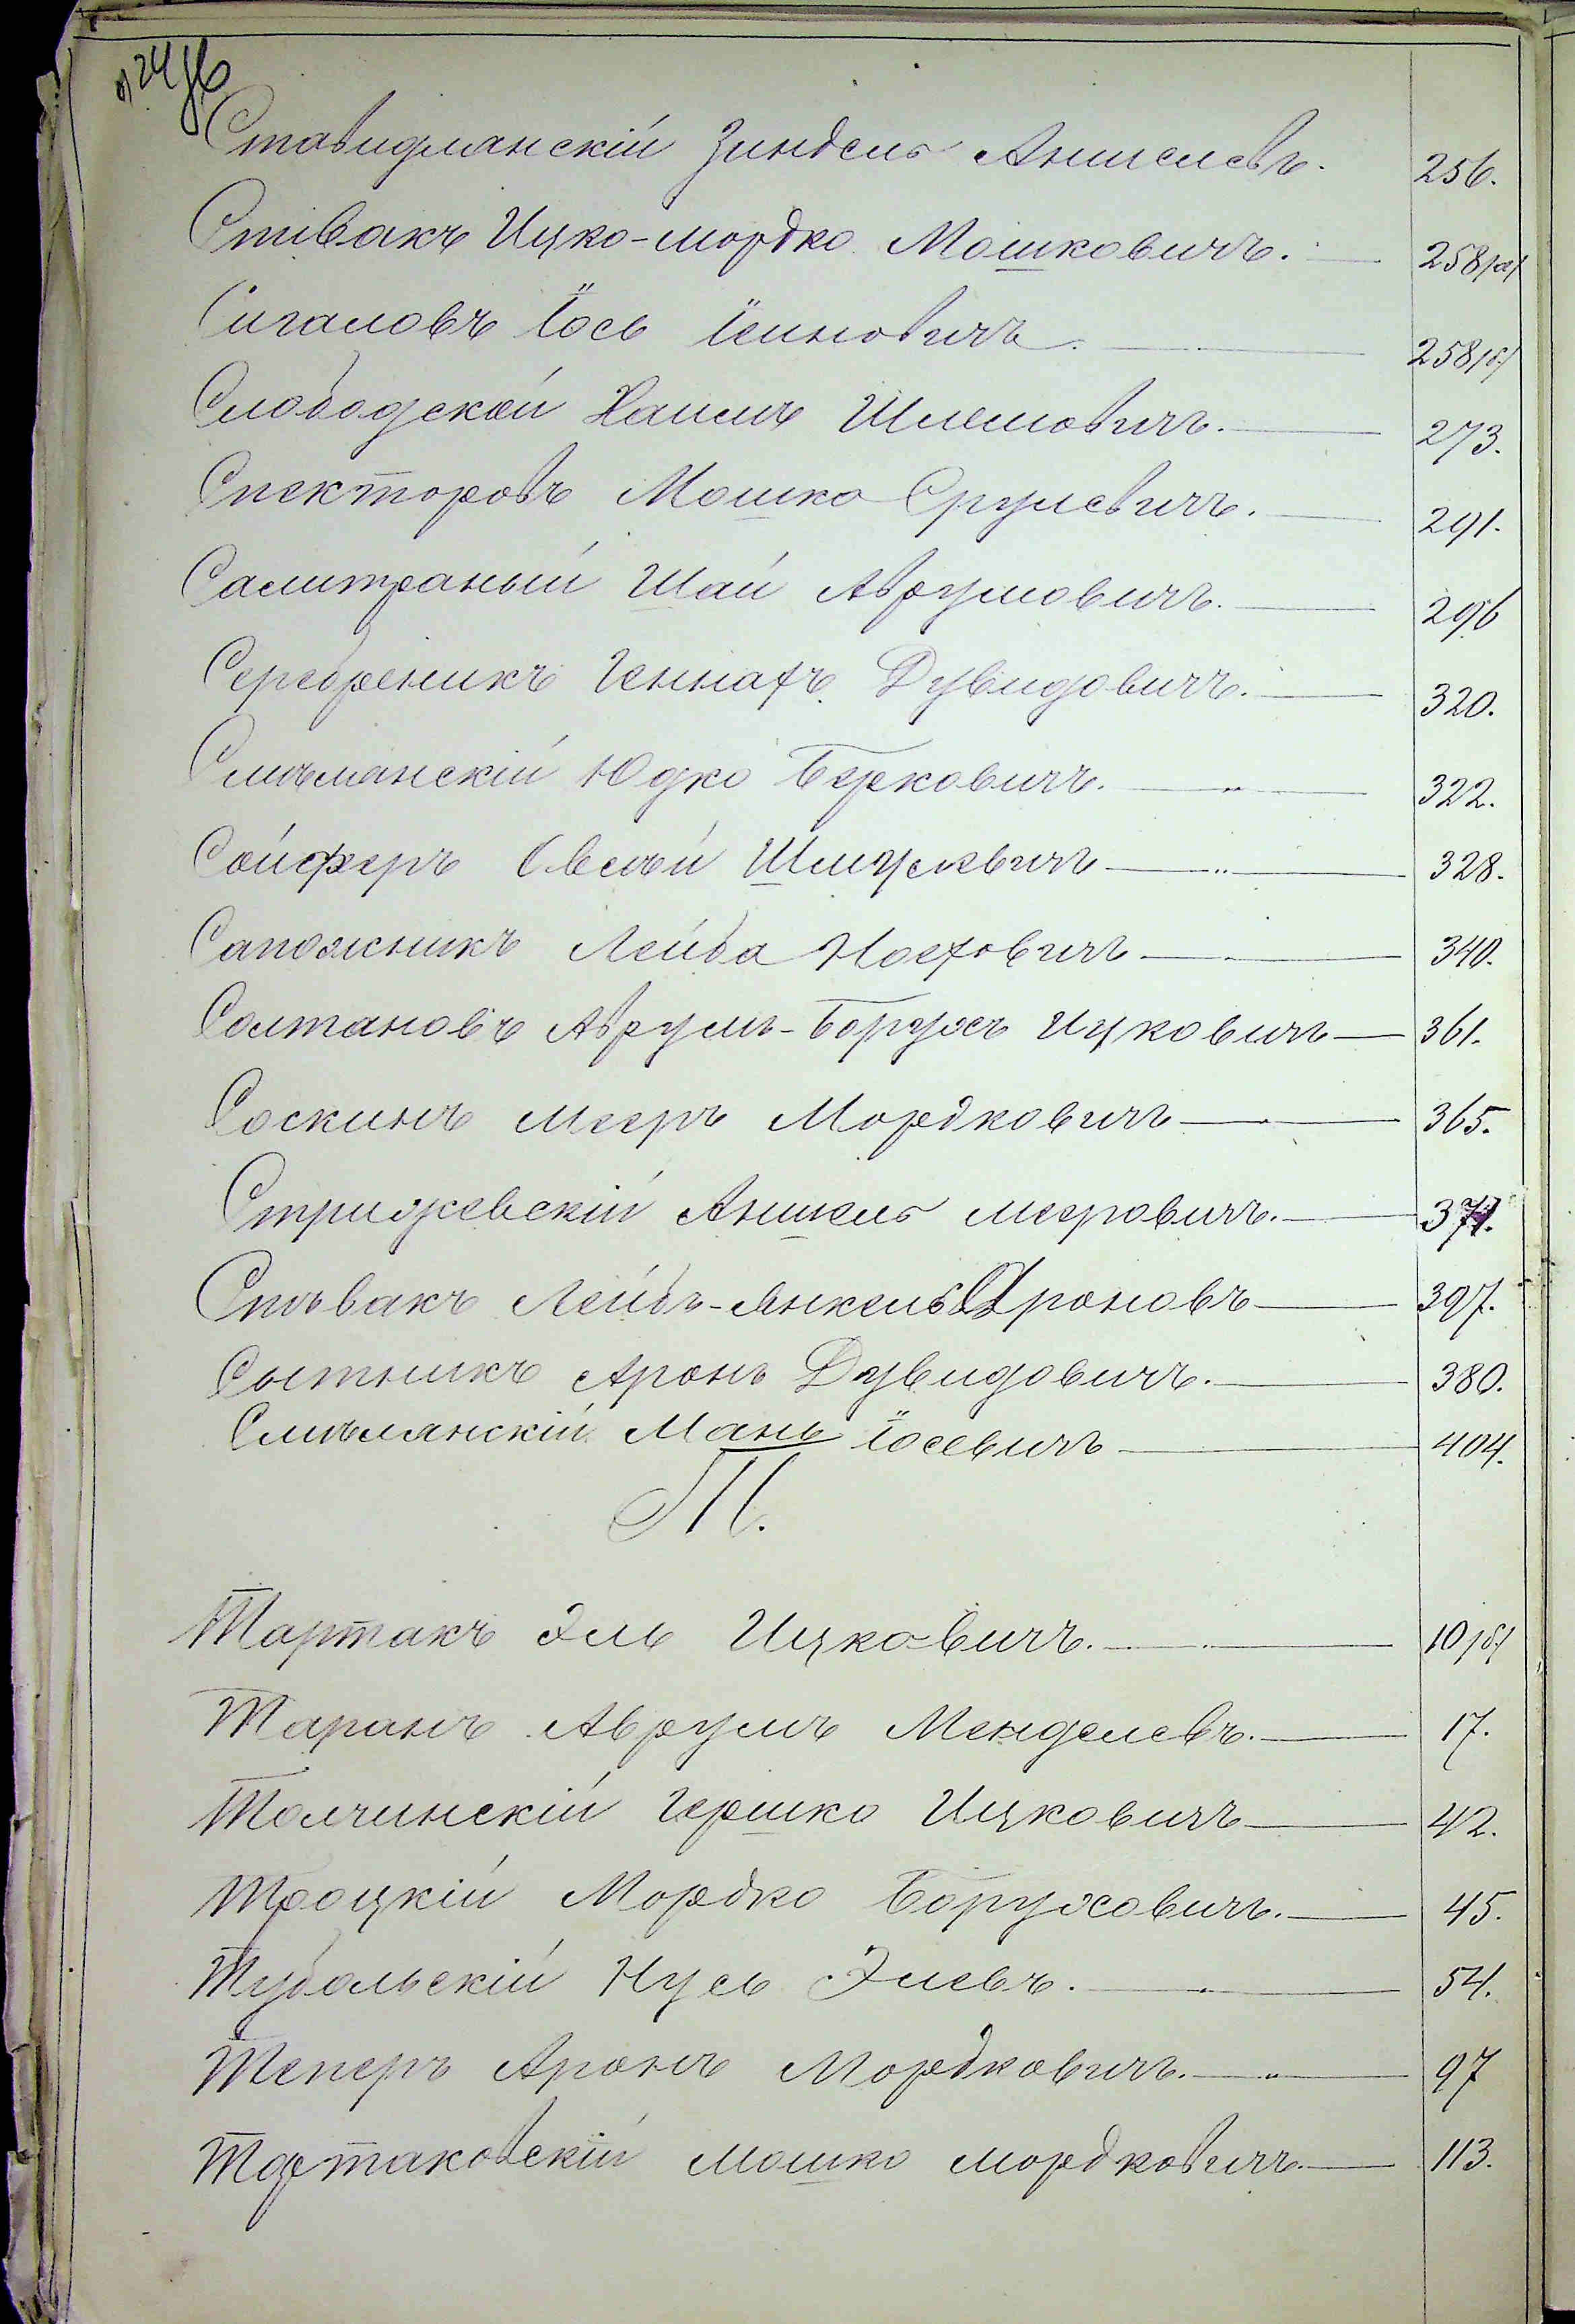 Ставидлянскій Зиндель Аншелевъ. 256.
Спивакъ Ицко-Мордко Мошковичъ. 258/а/
Сигаловъ Іось Іеиновичъ. 258/б/
Слободской Хаимъ Шлемовичъ. 273.
Спекторовъ Мошко Срулевичъ. 291.
Салитраный Шай Аврумовичъ. 296
Серебреникъ Геннахъ Дувидовичъ. 320.
Смѣлянскій Юдко Берковичъ. 322.
Сойферъ Овсѣй Шмулевичъ 328.
Сапожникъ Лейба Ноеховичъ 340.
Солтановъ Аврумъ-Борухъ Ицковичъ 361.
Соскинъ Мееръ Мордковичъ 365.
Стрижевскій Аншель Мееровичъ. 371.
Спѣвакъ Лейбъ-Янкель Ароновъ 397.
Сытникъ Аронъ Дувидовичъ. 380.
Смѣлянскій Мань Іосевичъ 404.
Т.
Тартакъ Эль Ицковичъ. 10/б/
Таранъ Аврумъ Менделевъ. 17.
Толчинскій Гершко Ицковичъ 42.
Троцкій Мордко Боруховичъ. 45.
Тубольскій Нусь Элевъ. 54.
Теперъ Аронъ Мордковичъ. 97
Тартаковскій Мошко Мордковичъ. 113.